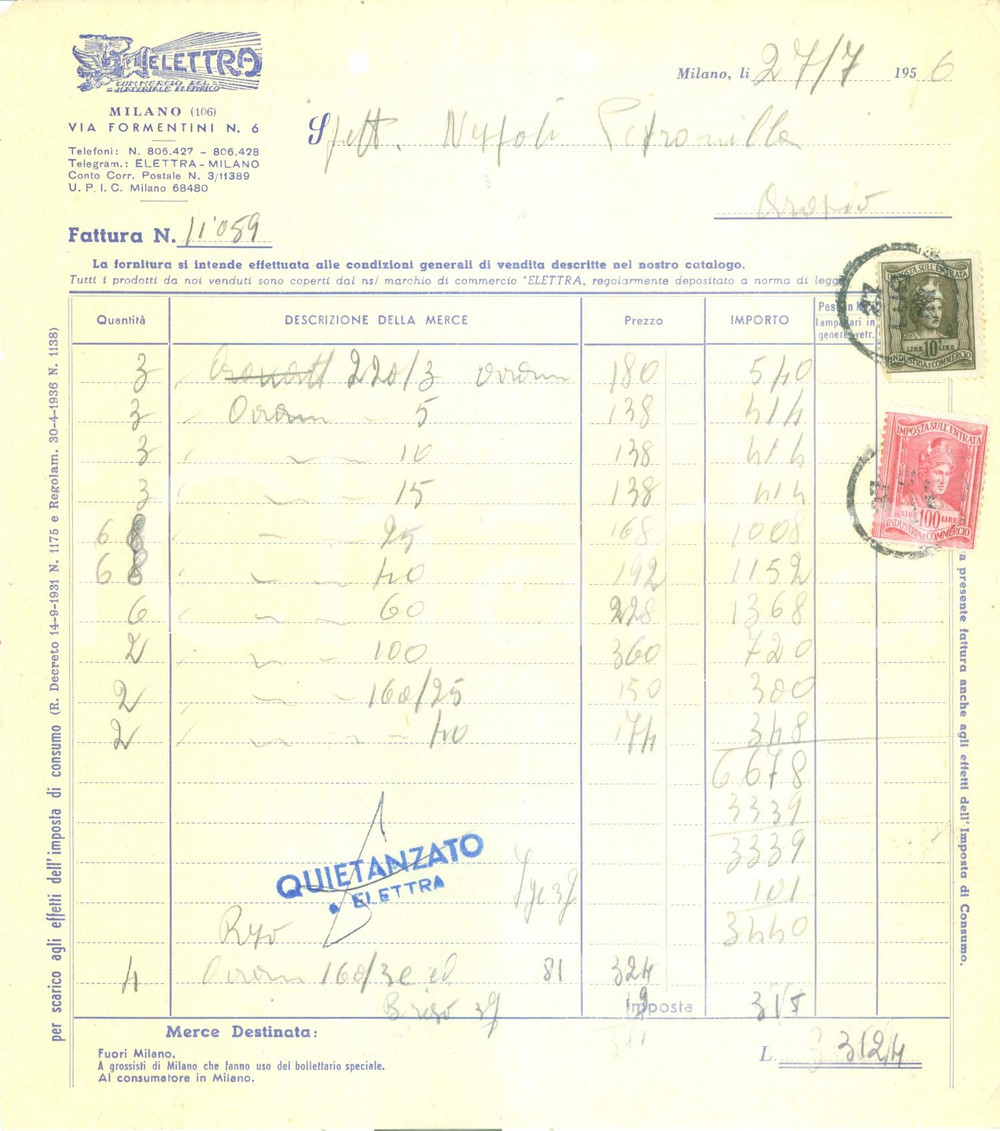 ELETTRA
COMMERCIO DEL
MATERIALE ELETTRICO
MILANO (106)
VIA FORMENTINI N. 6
Telefoni: N. 806.427 - 806.428
Telegram.: ELETTRA - MILANO
Conto Corr. Postale N. 3/11389
U. P. I. C. Milano 68480
Milano, li 27/7 1956
Spett.
Fattura N. 11'059
La fornitura si intende effettuata alle condizioni generali di vendita descritte nel nostro catalogo.
Tutti i prodotti da noi venduti sono coperti dal ns/ marchio di commercio "ELETTRA, regolarmente depositato a norma di legg
Quantità DESCRIZIONE DELLA MERCE Prezzo IMPORTO
Lampadari in
genere vetr.
3 220/3 180 540
3 Osram 5 138 414
3 " 10 138 414
3 " 15 138 414
6 " 25 168 1008
6 " 40 192 1152
6 60 228 1368
2 " 100 360 720
2 160/25 150 300
2 " 40 174 348
6678
3339
3339
Ige 3% 101
3440
QUIETANZATO
ELETTRA
4 Osram 160/ 81 324
3% Imposta 315
Merce Destinata:
Fuori Milano.
A grossisti di Milano che fanno uso del bollettario speciale.
Al consumatore in Milano.
L. 3124
per scarico agli effetti dell'imposta di consumo (R. Decreto 14-9-1931 N. 1175 e Regolam. 30-4-1936 N. 1138)
a presente fattura anche agli effetti dell'Imposta di Consumo.
IMPOSTA SULL'ENTRATA
LIRE 10 LIRE
INDUSTRIA E COMMERCIO
IMPOSTA SULL'ENTRATA
LIRE 100 LIRE
INDUSTRIA E COMMERCIO